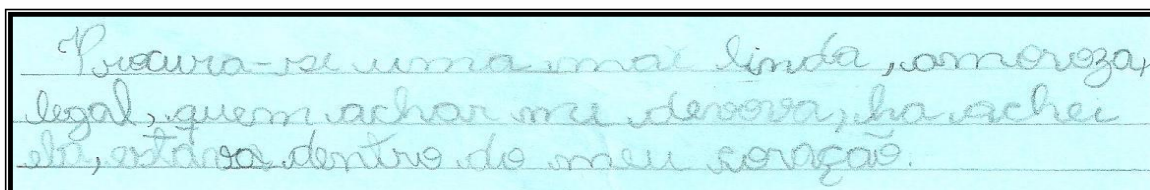 Procura-se uma mãe linda, amoroza,
legal, quem achar mi devova, ha achei
ela, estava dentro do meu coração.